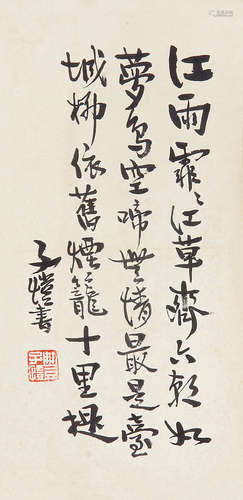 江雨霏〻江草齊六朝如
夢鳥空啼無情最是臺
城柳依舊煙籠十里堤
子愷書